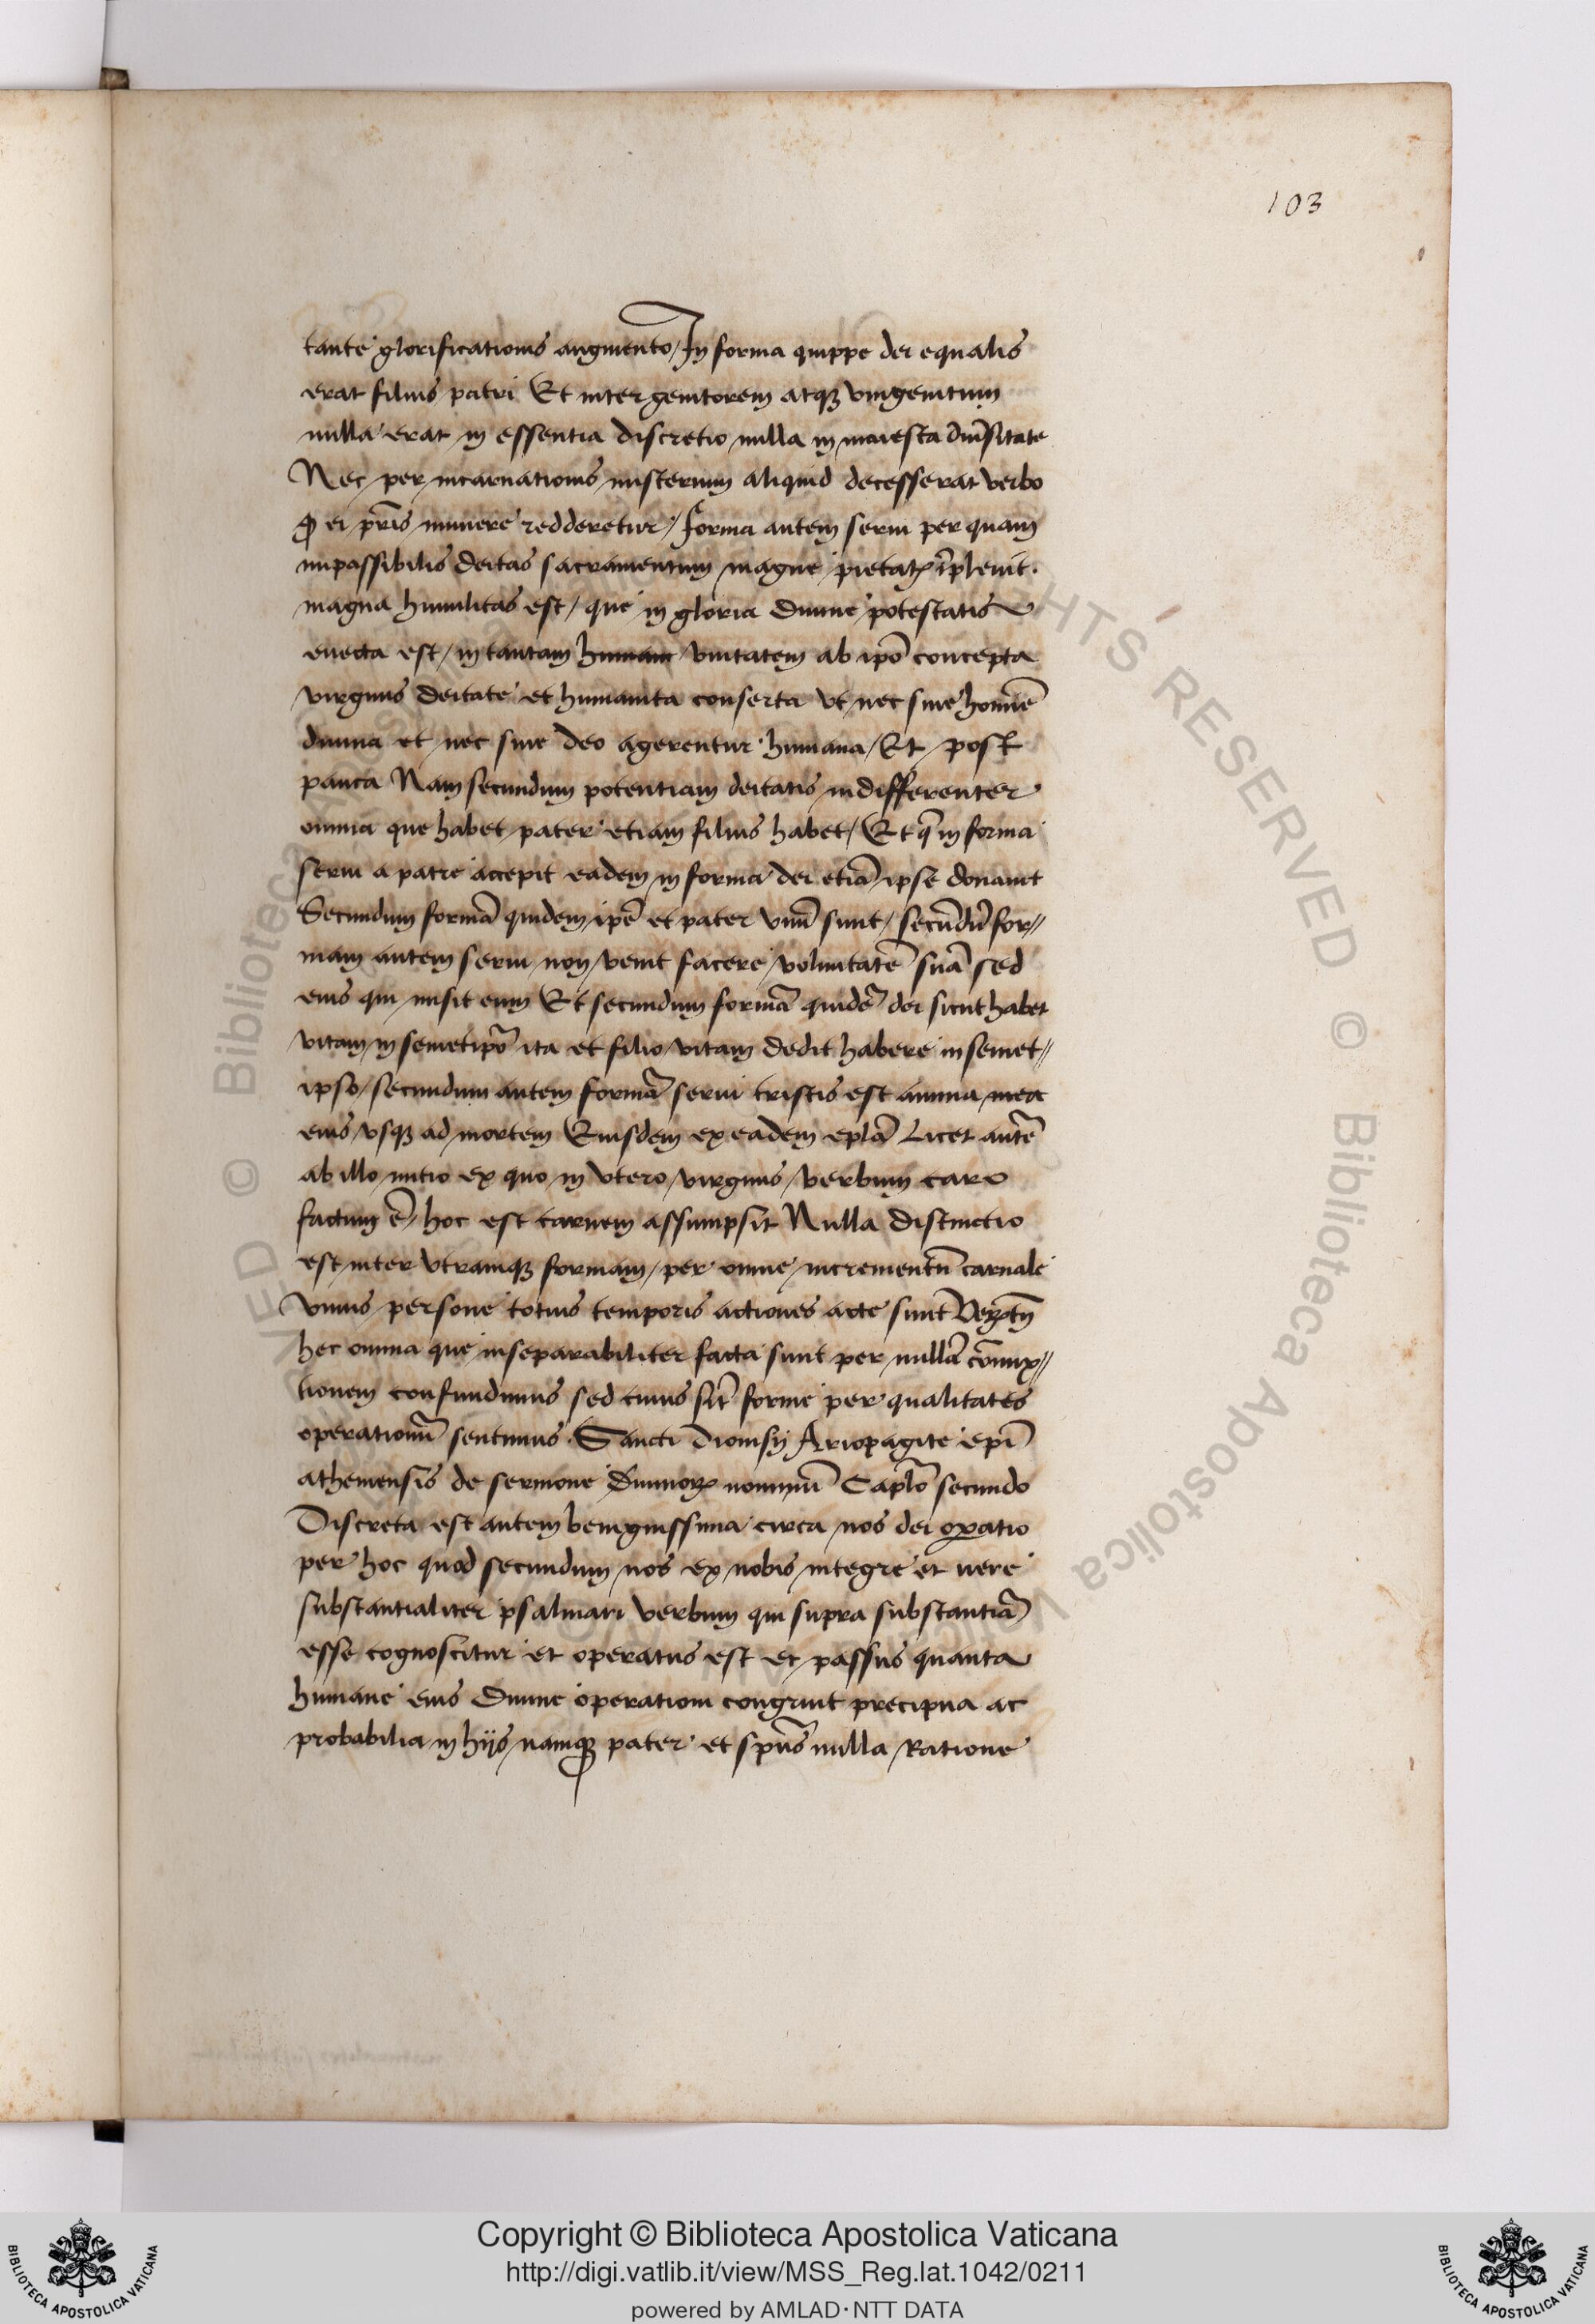 103
tante glorificationis augmento / In forma quippe dei equalis
erat filius patri Et inter genitorem atqꝫ vnigenitum
nulla erat in essentia discretio nulla in maiesta diũsitate
Nec per incarnationis misterium aliquid decesserat verbo
ꝙ ei pr̃is munere redderetur / forma autem serui per quam
impassibilis deitas sacramentum magne pietatꝭ ĩpleuit.
magna humilitas est / que in gloria diuine potestatis
euecta est / in tantam humanam vnitatem ab ip̃o concepta
virginis deitate et humanita conserta vt nec sine homĩe
diuina et nec sine deo agerentur humana / Et post
pauca Nam secundum potentiam deitatis indifferenter
omnia que habet pater etiam filius habet / Et q̃ in forma
serui a patre accepit eadem in forma dei etiã ipse donauit
Secundum formã quidem ip̃e et pater vnũ sunt / secũdũ for//
mam autem serui non venit facere voluntatẽ suã sed
eius qui misit eum Et secundum formã quidẽ dei sicut habet
vitam in semetip̃o ita et filio vitam dedit habere in semet//
ipso / secundum autem formã serui tristis est anima mea
eius vsqꝫ ad mortem Eiusdem ex eadem ep̃lã Licet autẽ
ab illo initio ex quo in vtero virginis verbum caro
factum ẽ / hoc est carnem assumpsit Nulla distinctio
est inter vtramqꝫ formam / per omne incrementũ carnale
vnius persone totius temporis actiones acte sunt Veꝝtñ
hec omnia que inseparabiliter facta sunt per nullã cõmix//
tionem confundimus sed cuius sit forme per qualitates
operationũ sentimus . Sancti Dionisij Ariopagite ep̃i
atheniensis de sermone Diuinoꝝ nominũ Cap̃lo secundo
Discreta est autem benignissima circa nos dei oꝑatio
per hoc quod secundum nos ex nobis integre et vere
substantialiter psalmari verbum qui supra substantiã
esse cognoscitur et operatus est et passus quanta
humane eius diuine operationi congruit precipua ac
probabilia in hijs namqꝫ pater et sp̃us nulla Ratione
Copyright © Biblioteca Apostolica Vaticana
http://digi.vatlib.it/view/MSS_Reg.lat.1042/0211
powered by AMLAD·NTT DATA